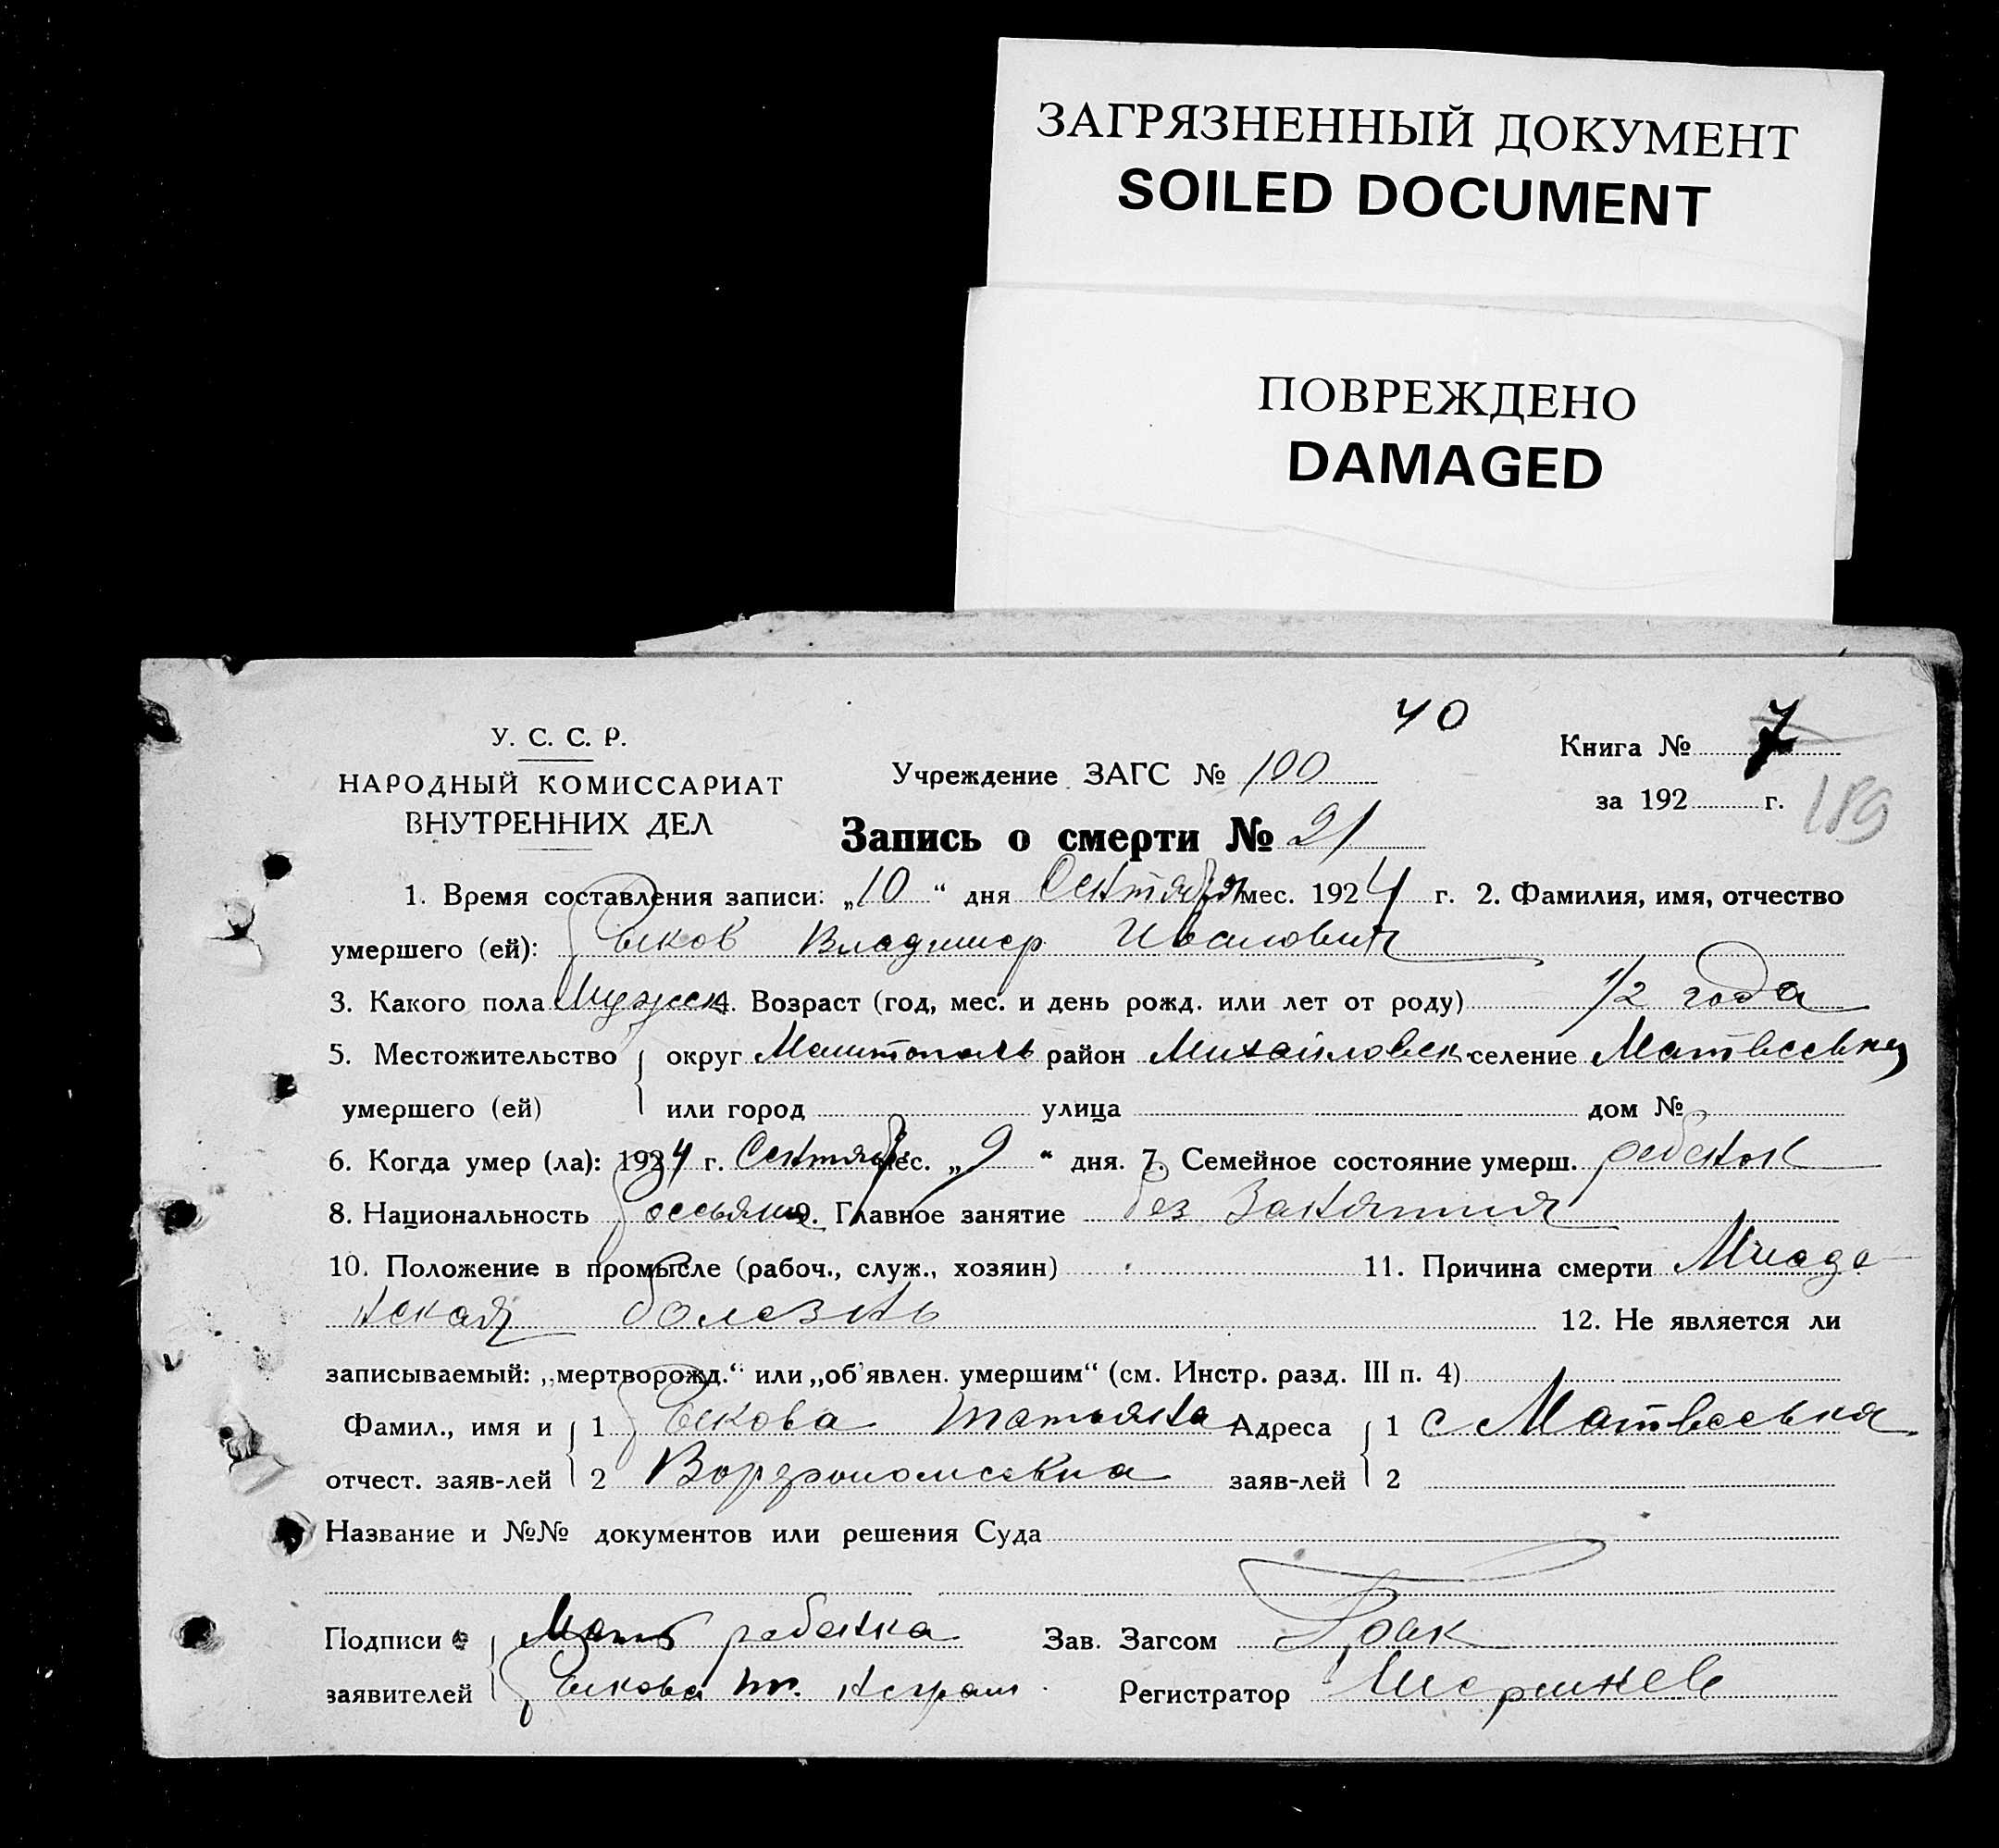 ЗАГРЯЗНЕННЫЙ ДОКУМЕНТ
SOILED DOCUMENT
ПОВРЕЖДЕНО
DAMAGED
40
У. С. С. Р.
НАРОДНЫЙ КОМИССАРИАТ
ВНУТРЕННИХ ДЕЛ
Учреждение ЗАГС № 100
Книга № 7
за 192 г. 189
Запись о смерти № 21
1. Время составления записи: „10“ дня Сентября мес. 1924 г. 2. Фамилия, имя, отчество
умершего (ей): Владимир Иванович
3. Какого пола Мужск 4. Возраст (год, мес. и день рожд. или лет от роду) 1/2 года
5. Местожительство округ Мелитополь район Михайловск селение Матвеевка
умершего (ей) или город улица дом №
6. Когда умер (ла): 1924 г. Сентяб мес. „9“ дня. 7. Семейное состояние умерш. ребенок
8. Национальность 9. Главное занятие без занятия
10. Положение в промысле (рабоч., служ., хозяин) 11. Причина смерти Младе-
нская болезнь 12. Не является ли
записываемый: „мертворожд.“ или „об'явлен. умершим“ (см. Инстр. разд. III п. 4)
Фамил., имя и 1 Татьяна Адреса 1 с Матвеевка
отчест. заяв-лей 2 заяв-лей 2
Название и №№ документов или решения Суда
Подписи Мать ребенка Зав. Загсом
заявителей Регистратор